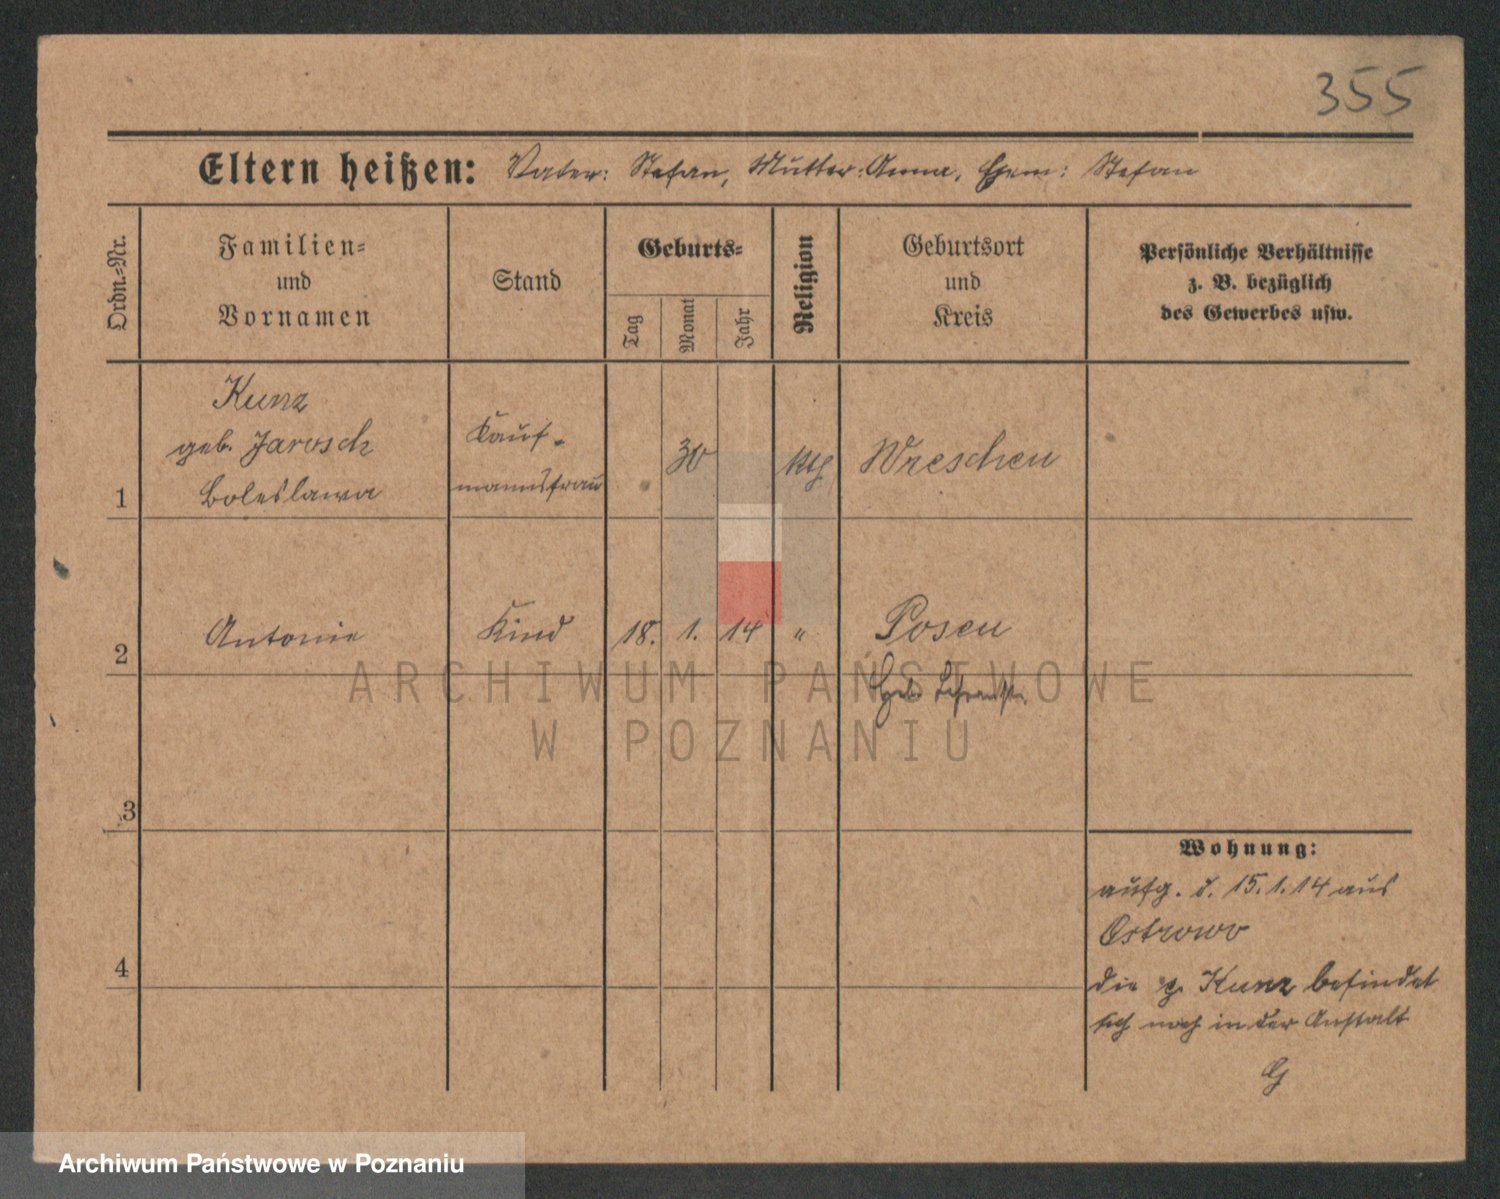 355
Eltern heißen: Vater: Stefan, Mutter: Anna, Ehem: Stefan
Ordn.-Nr.
Familien-
und
Vornamen
Stand
Geburts-
Tag
Monat
Jahr
Religion
Geburtsort
und
Kreis
Persönliche Verhältnisse
z. B. bezüglich
des Gewerbes usw.
1
Kunz
geb. Jarosch
Boleslawa
Kauf-
mannsfrau
30
ktlg
Wreschen
2
Antonie
Kind
18. 1. 14
"
Posen
Heb.
3
4
Wohnung:
aufg. d. 15.1.14 aus
Ostrowo
die p. Kunz befindet
sich noch in der Anstalt
G
ARCHIWUM PAŃSTWOWE
W POZNANIU
Archiwum Państwowe w Poznaniu